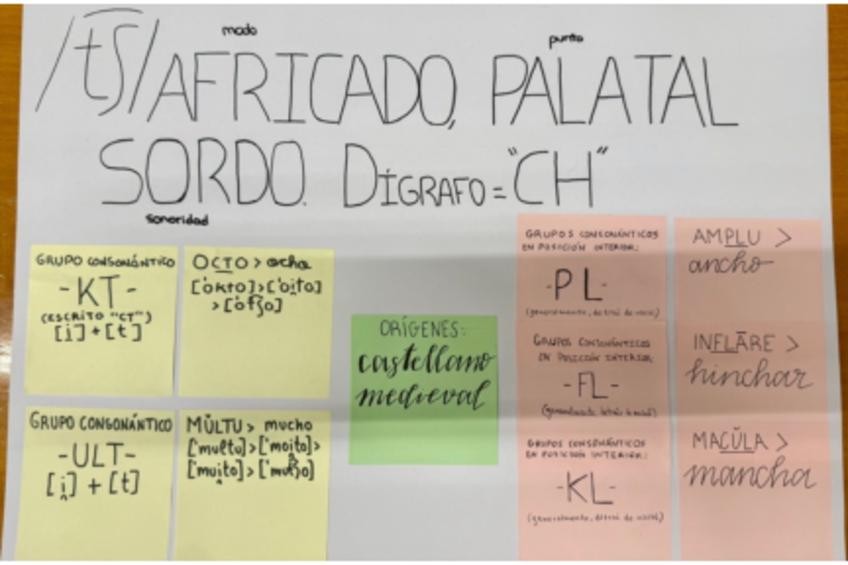 modo
punto
/t͡ʃ/ AFRICADO, PALATAL
SORDO. DÍGRAFO = "CH"
sonoridad
GRUPO CONSONÁNTICO
-KT-
(ESCRITO "CT")
[i̯] + [t]
OCTO > ocho
['okto] > ['oi̯to]
> ['ot͡ʃo]
GRUPO CONSONÁNTICO
-ULT-
[i̯] + [t]
MŬLTU > mucho
['multu] > ['moi̯to] >
['mui̯to] > ['mut͡ʃo]
ORÍGENES:
castellano
medieval
GRUPOS CONSONÁNTICOS
EN POSICIÓN INTERIOR:
-PL-
(generalmente, detrás de nasal)
GRUPOS CONSONÁNTICOS
EN POSICIÓN INTERIOR
-FL-
(generalmente detrás de nasal)
GRUPOS CONSONÁNTICOS
EN POSICIÓN INTERIOR:
-KL-
(generalmente, detrás de nasal)
AMPLU >
ancho
INFLĀRE >
hinchar
MACŬLA >
mancha